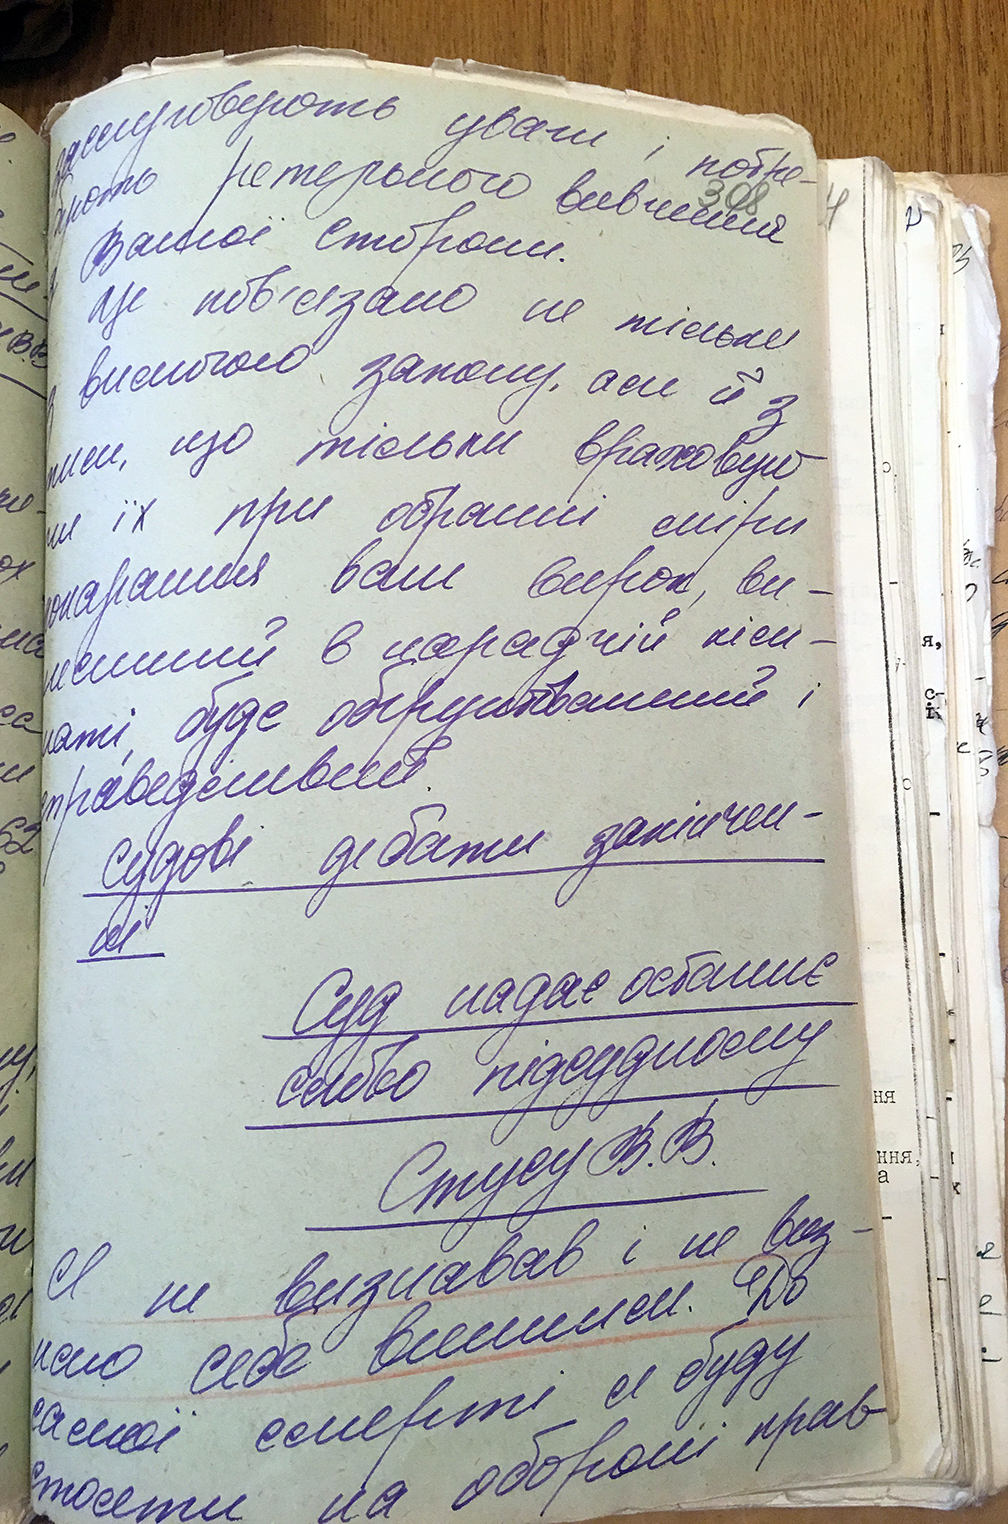 заслуговують уваги і потре-
308
бують ретельного вивчення
з Вашої сторони.
Це пов'язано не тільки
з вимогою закону, але й з
тим, що тільки врахував
ши їх при обранні міри
покарання ваш вирок, ви-
несений в нарадчій кім-
наті, буде обґрунтований і
справедливий.
Судові дебати закінчен-
ні
Суд надає останнє
слово підсудному
Стусу В.В.
Я не визнавав і не виз-
наю себе винним. До
самої смерті я буду
стояти на обороні прав